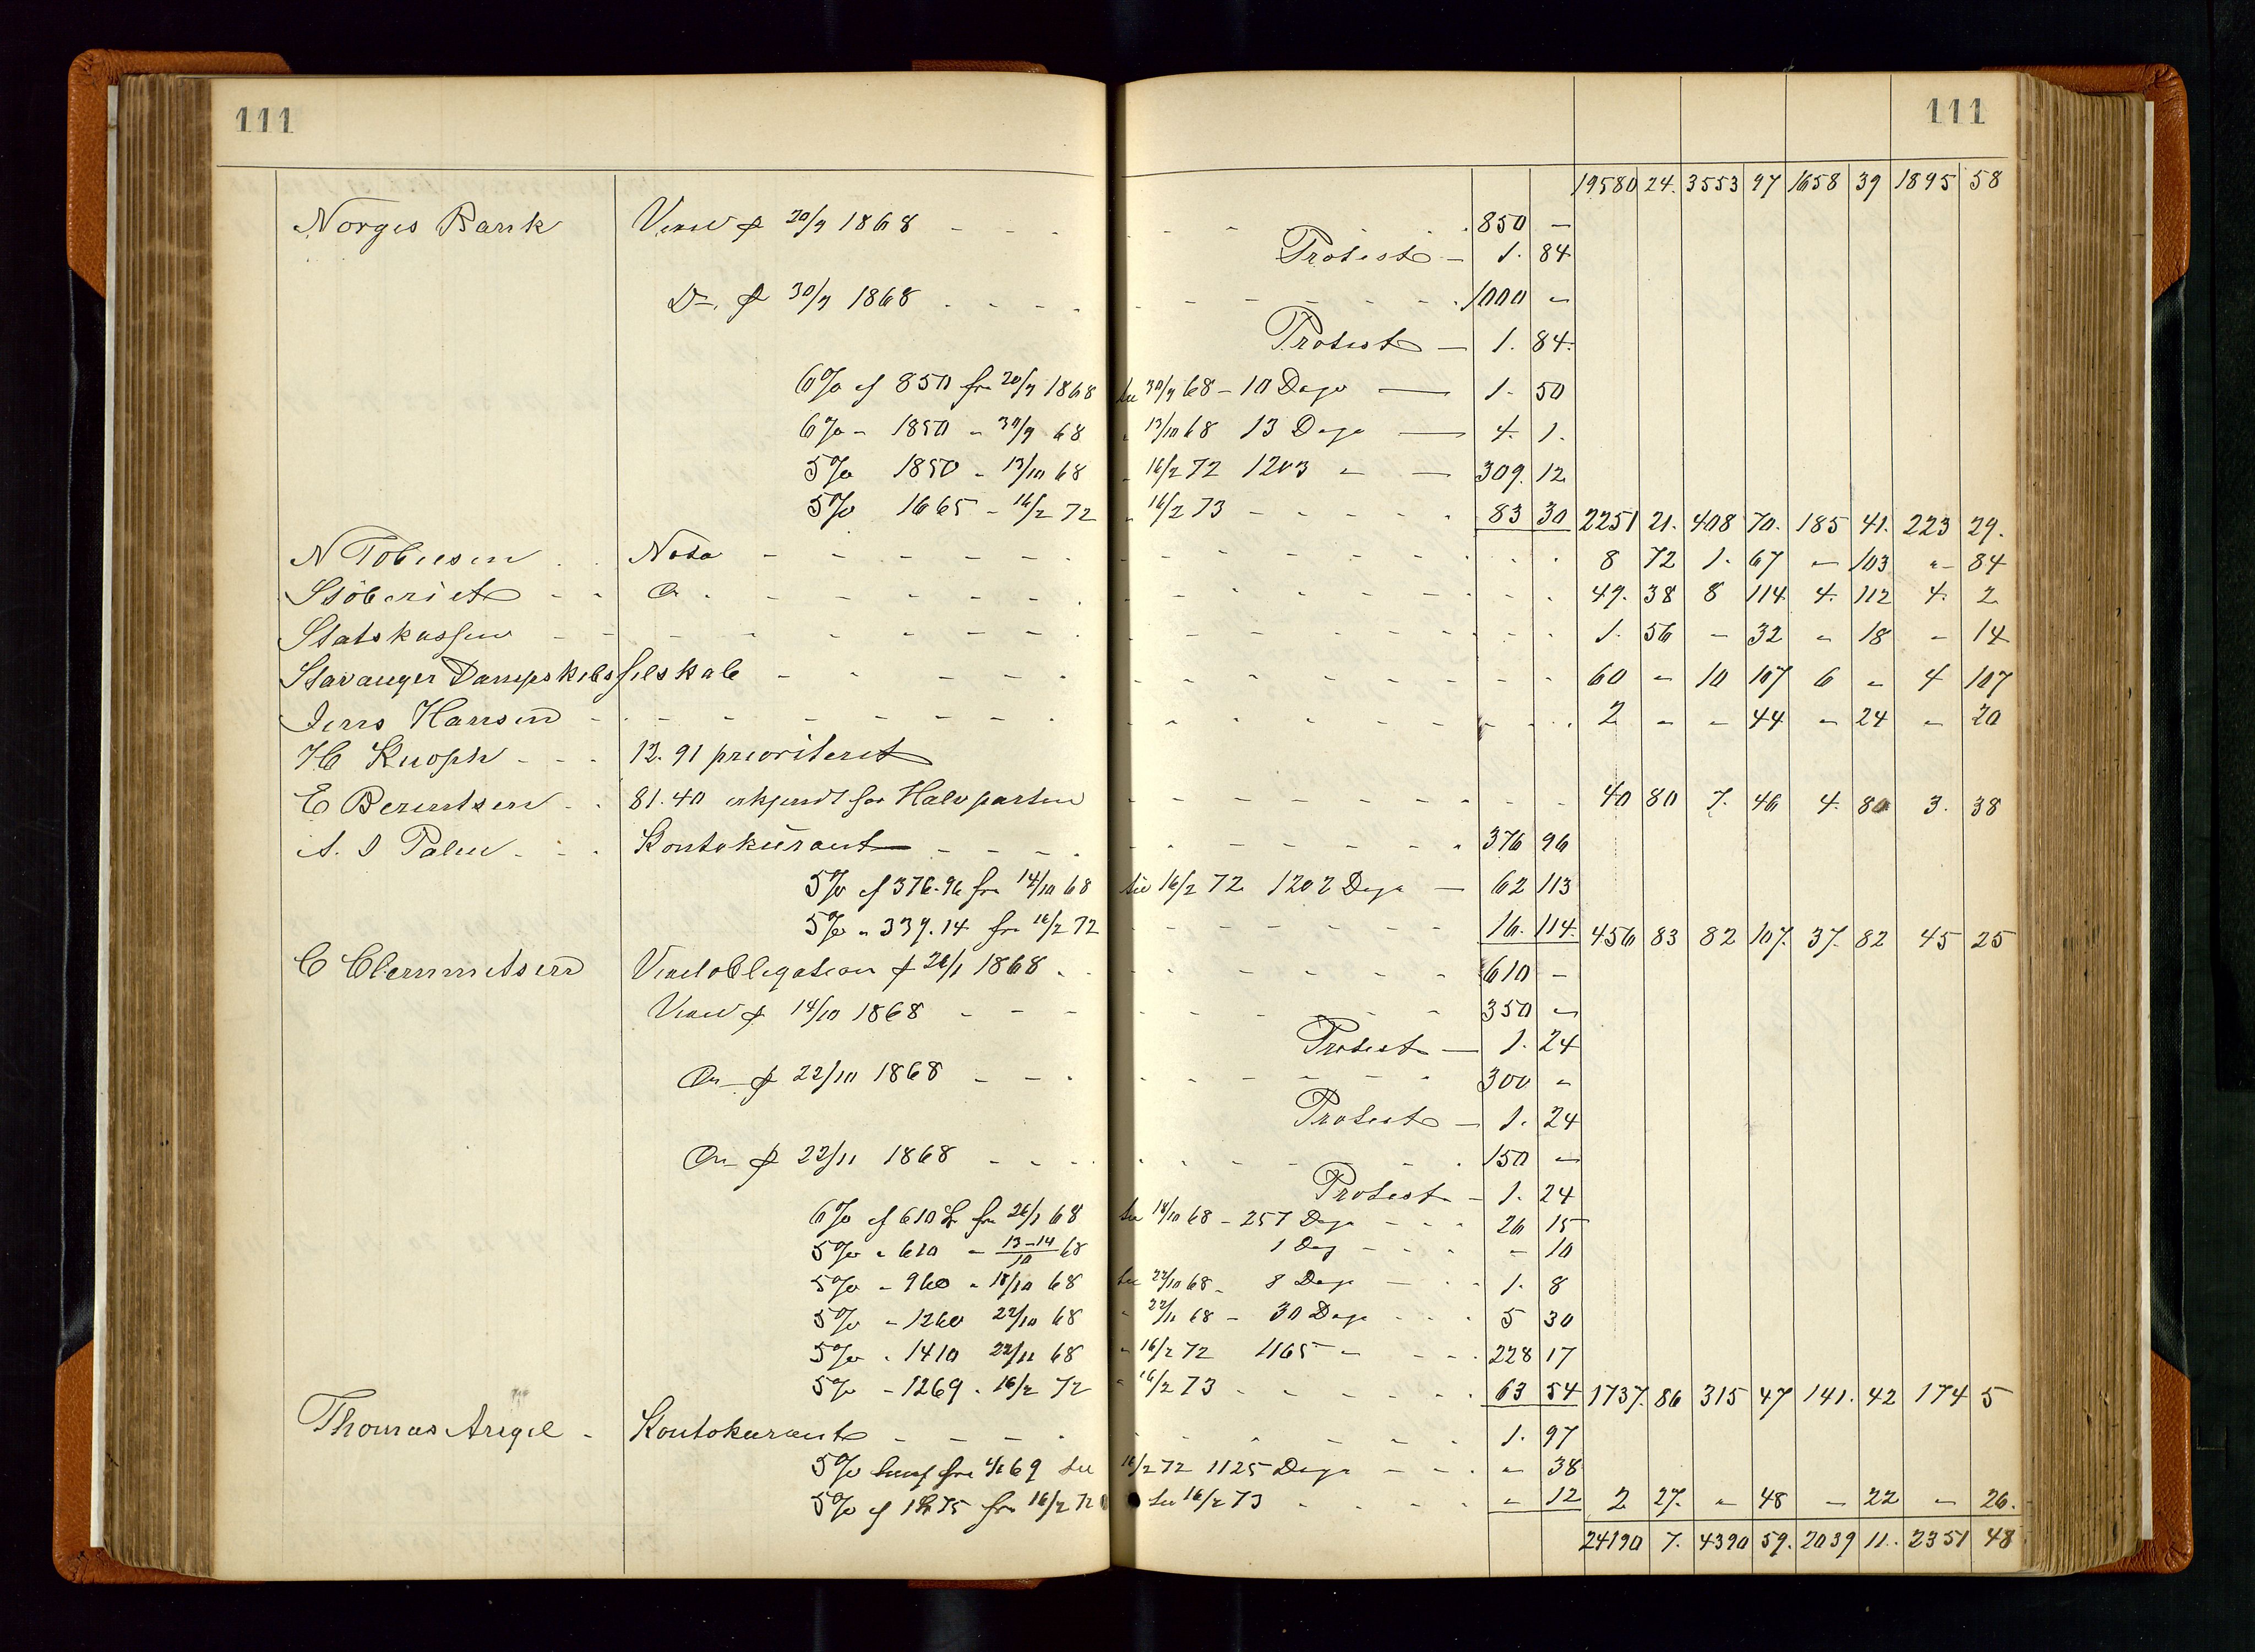 111 111
19580 24. 3553 97 1658 39 1895 58
Norges Bank Vexel p 20/9 1868 - - - 850 -
Protest - 1. 84
Do. p 30/9 1868 - - - 1000 -
Protest - 1. 84.
6% af 850 fra 20/9 1868 til 30/9 68 - 10 Dage - 1. 50
6% - 1850 - 30/9 68 " 13/10 68 13 Dage - 4. 1.
5% 1850 - 13/10 68 - 16/2 72 1203 " - 309. 12
5% 1665 - 16/2 72 " 16/2 73 - - - 83 30 2251 21. 408 70. 185 41. 223 29.
N Tobiesen Nota - - - 8 72 1. 67 - 103 " 84
Sjöberiet - - - 49. 38 8 114 4. 112 4. 2
Statskassen - - - 1. 56 - 32 - 18 - 14
Stavanger Dampskibsselskab - - - 60 - 10 107 6 - 4 107
Jens Hansen - - - 2 - - 44 - 24 - 20
H Knoph - - - 12. 91 prioriteret
E Berentsen - - 81. 40 erkjendt for Halvparten - - - 40 80 7. 46 4. 80 3. 38
A. J Palm - - - Kontokurant - - - 376 96
5% af 376. 96 fra 14/10 68 til 16/2 72 1202 Dage - 62 113
5% " 339. 14 fra 16/2 72 - - - 16. 114. 456 83 82 107. 37. 82 45 25
C Clemmetsen Vexelobligation p 26/1 1868 - - - 610 -
Vexel p 14/10 1868 - - - 350 -
Protest - 1. 24
Do p 22/10 1868 - - - 300 -
Protest - 1. 24
Do p 22/11 1868 - - - 150 -
Protest - 1. 24
6% af 610 fra 26/1 68 til 13/10 68 - 257 Dage - - - 26 15
5% " 610 - 13-14/10 68 1 Dag - - - - 10
5% - 960 " 14/10 68 til 22/10 68 - 8 Dage - - 1. 8
5% - 1260 22/10 68 - 22/11 68 - 30 Dage - - - 5 30
5% - 1410 22/11 68 " 16/2 72 1165 " - - - 228 17
5% - 1269 - 16/2 72 " 16/2 73 - - - 63 54 1737. 86 315 47 141. 42 174 5
Thomas Angel - Kontokurant - - - 1. 97
5% fra 69 til 16/2 72 1125 Dage - - - " 38
5% af 1 75 fra 16/2 72 til 16/2 73 - - - " 12 2 27. " 48 - 22 - 26.
24190 7. 4390 59. 2039 11. 2351 48